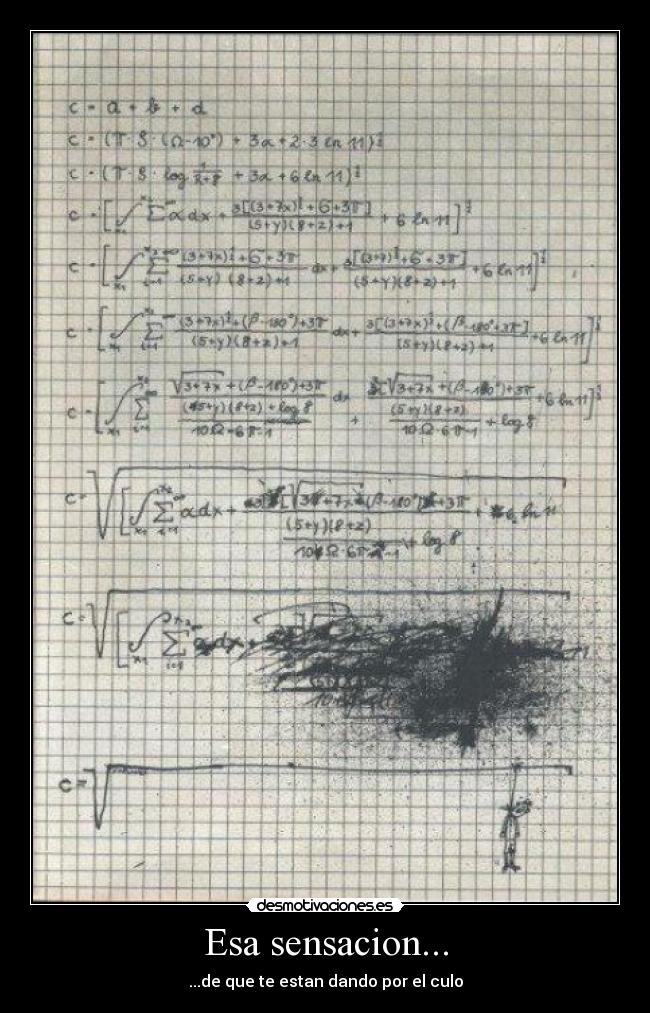 c = a + b + d
c = (π · S · (Ω-10°) + 3α + 2·3 ln 11)½
c = (π · S · log + 3α + 6 ln 11)½
c = [∫ Σ α dx + 3[(3+7x)½ + 6 + 3π] / (5+y)(8+z)+1 + 6 ln 11]½
c = [∫ Σ (3+7x)½ + 6 + 3π / (5+y)(8+z)+1 dx + 3[(3+7)½ + 6 + 3π] / (5+y)(8+z)+1 + 6 ln 11]½
c = [∫ Σ (3+7x)½ + (β-180°) + 3π / (5+y)(8+z)+1 dx + 3[(3+7x)½ + (β-180° + 3π] / (5+y)(8+z)+1 + 6 ln 11]½
c = [∫ Σ √3+7x + (β-180°) + 3π / (5+y)(8+z) + log 8 / 10Ω-6π-1 dx + √3+7x + (β-180°) + 3π / (5+y)(8+z) / 10Ω·6π-1 + log 8 + 6 ln 11]½
c = √[∫ Σ α dx + √3+7x (β-180°) + 3π / (5+y)(8+z) / 10Ω·6π-1 + log 8 + 6 ln 11
c = √[∫ Σ dx +
c = √
desmotivaciones.es
Esa sensacion...
...de que te estan dando por el culo